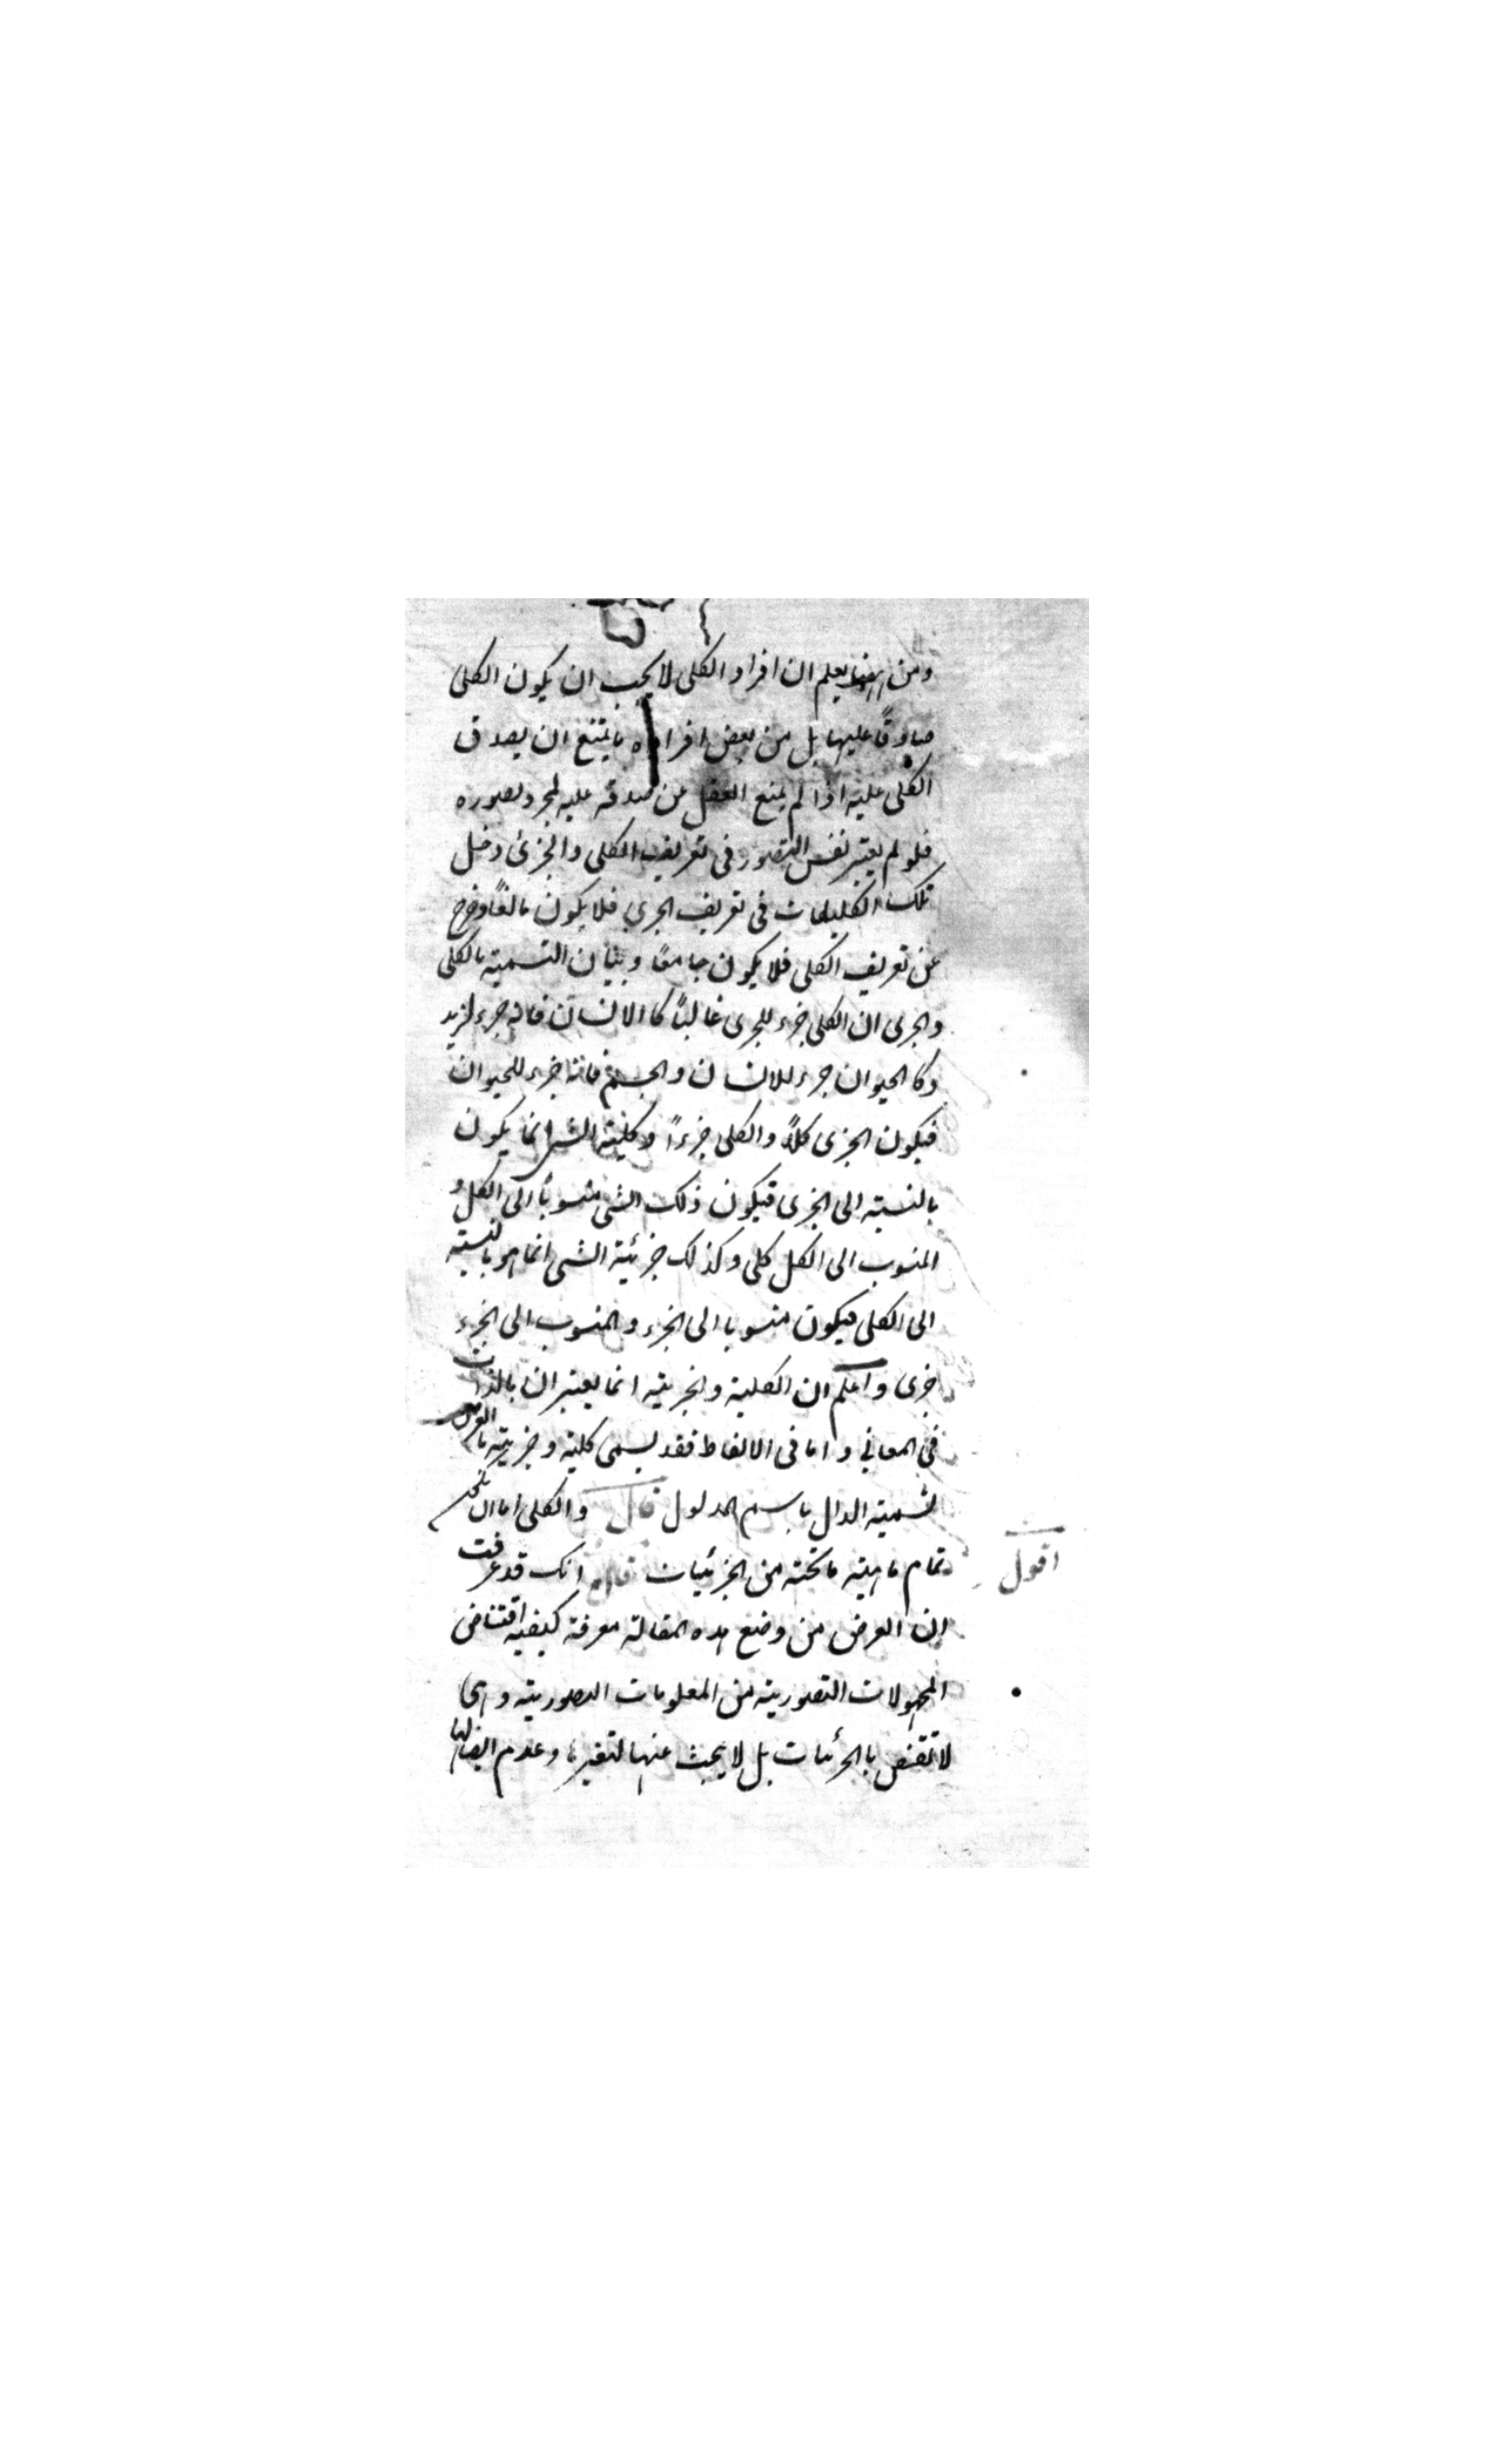 ومن ههنا يعلم ان افراد الكلى لا يجب ان يكون الكلى
صادقًا عليها بل من بعض افراده ما يمتنع ان يصدق
الكلى عليه اذا لم يمنع العقل عن صدقه عليه لمجرد تصوره
فلو لم يعتبر نفس التصور فى تعريف الكلى والجزئ دخل
تلك الكليات فى تعريف الجزى فلا يكون مانعًا وخرج
عن تعريف الكلى فلا يكون جامعًا وبيان التسمية بالكلى
والجزى ان الكلى جزء للجزى غالبًا كالانسان فانه جزء لزيد
وكالحيوان جزء للانسان والجسم فانه جزء للحيوان
فيكون الجزى كلاً والكلى جزءاً وكلية الشى انما يكون
بالنسبة الى الجزى فيكون ذلك الشى منسوبًا الى الكل و
المنسوب الى الكل كلى وكذلك جزئية الشى انما هو بالنسبة
الى الكلى فيكون منسوبا الى الجزء والمنسوب الى الجزء
جزى واعلم ان الكلية والجزئية انما يعتبران بالذات
فى المعانى واما فى الالفاظ فقد يسمى كلية وجزيية بالعرض
تسمية الدال باسم المدلول قال والكلى اما ان يكون
تمام ماهية ما تحته من الجزئيات انك قد عرفت
اقول
ان الغرض من وضع هذه المقالة معرفة كيفية اقتناص
المجهولات التصورية من المعلومات التصورية وهى
لا تقتنص بالجزئيات بل لا يبحث عنها لتغيرها وعدم انضباطها